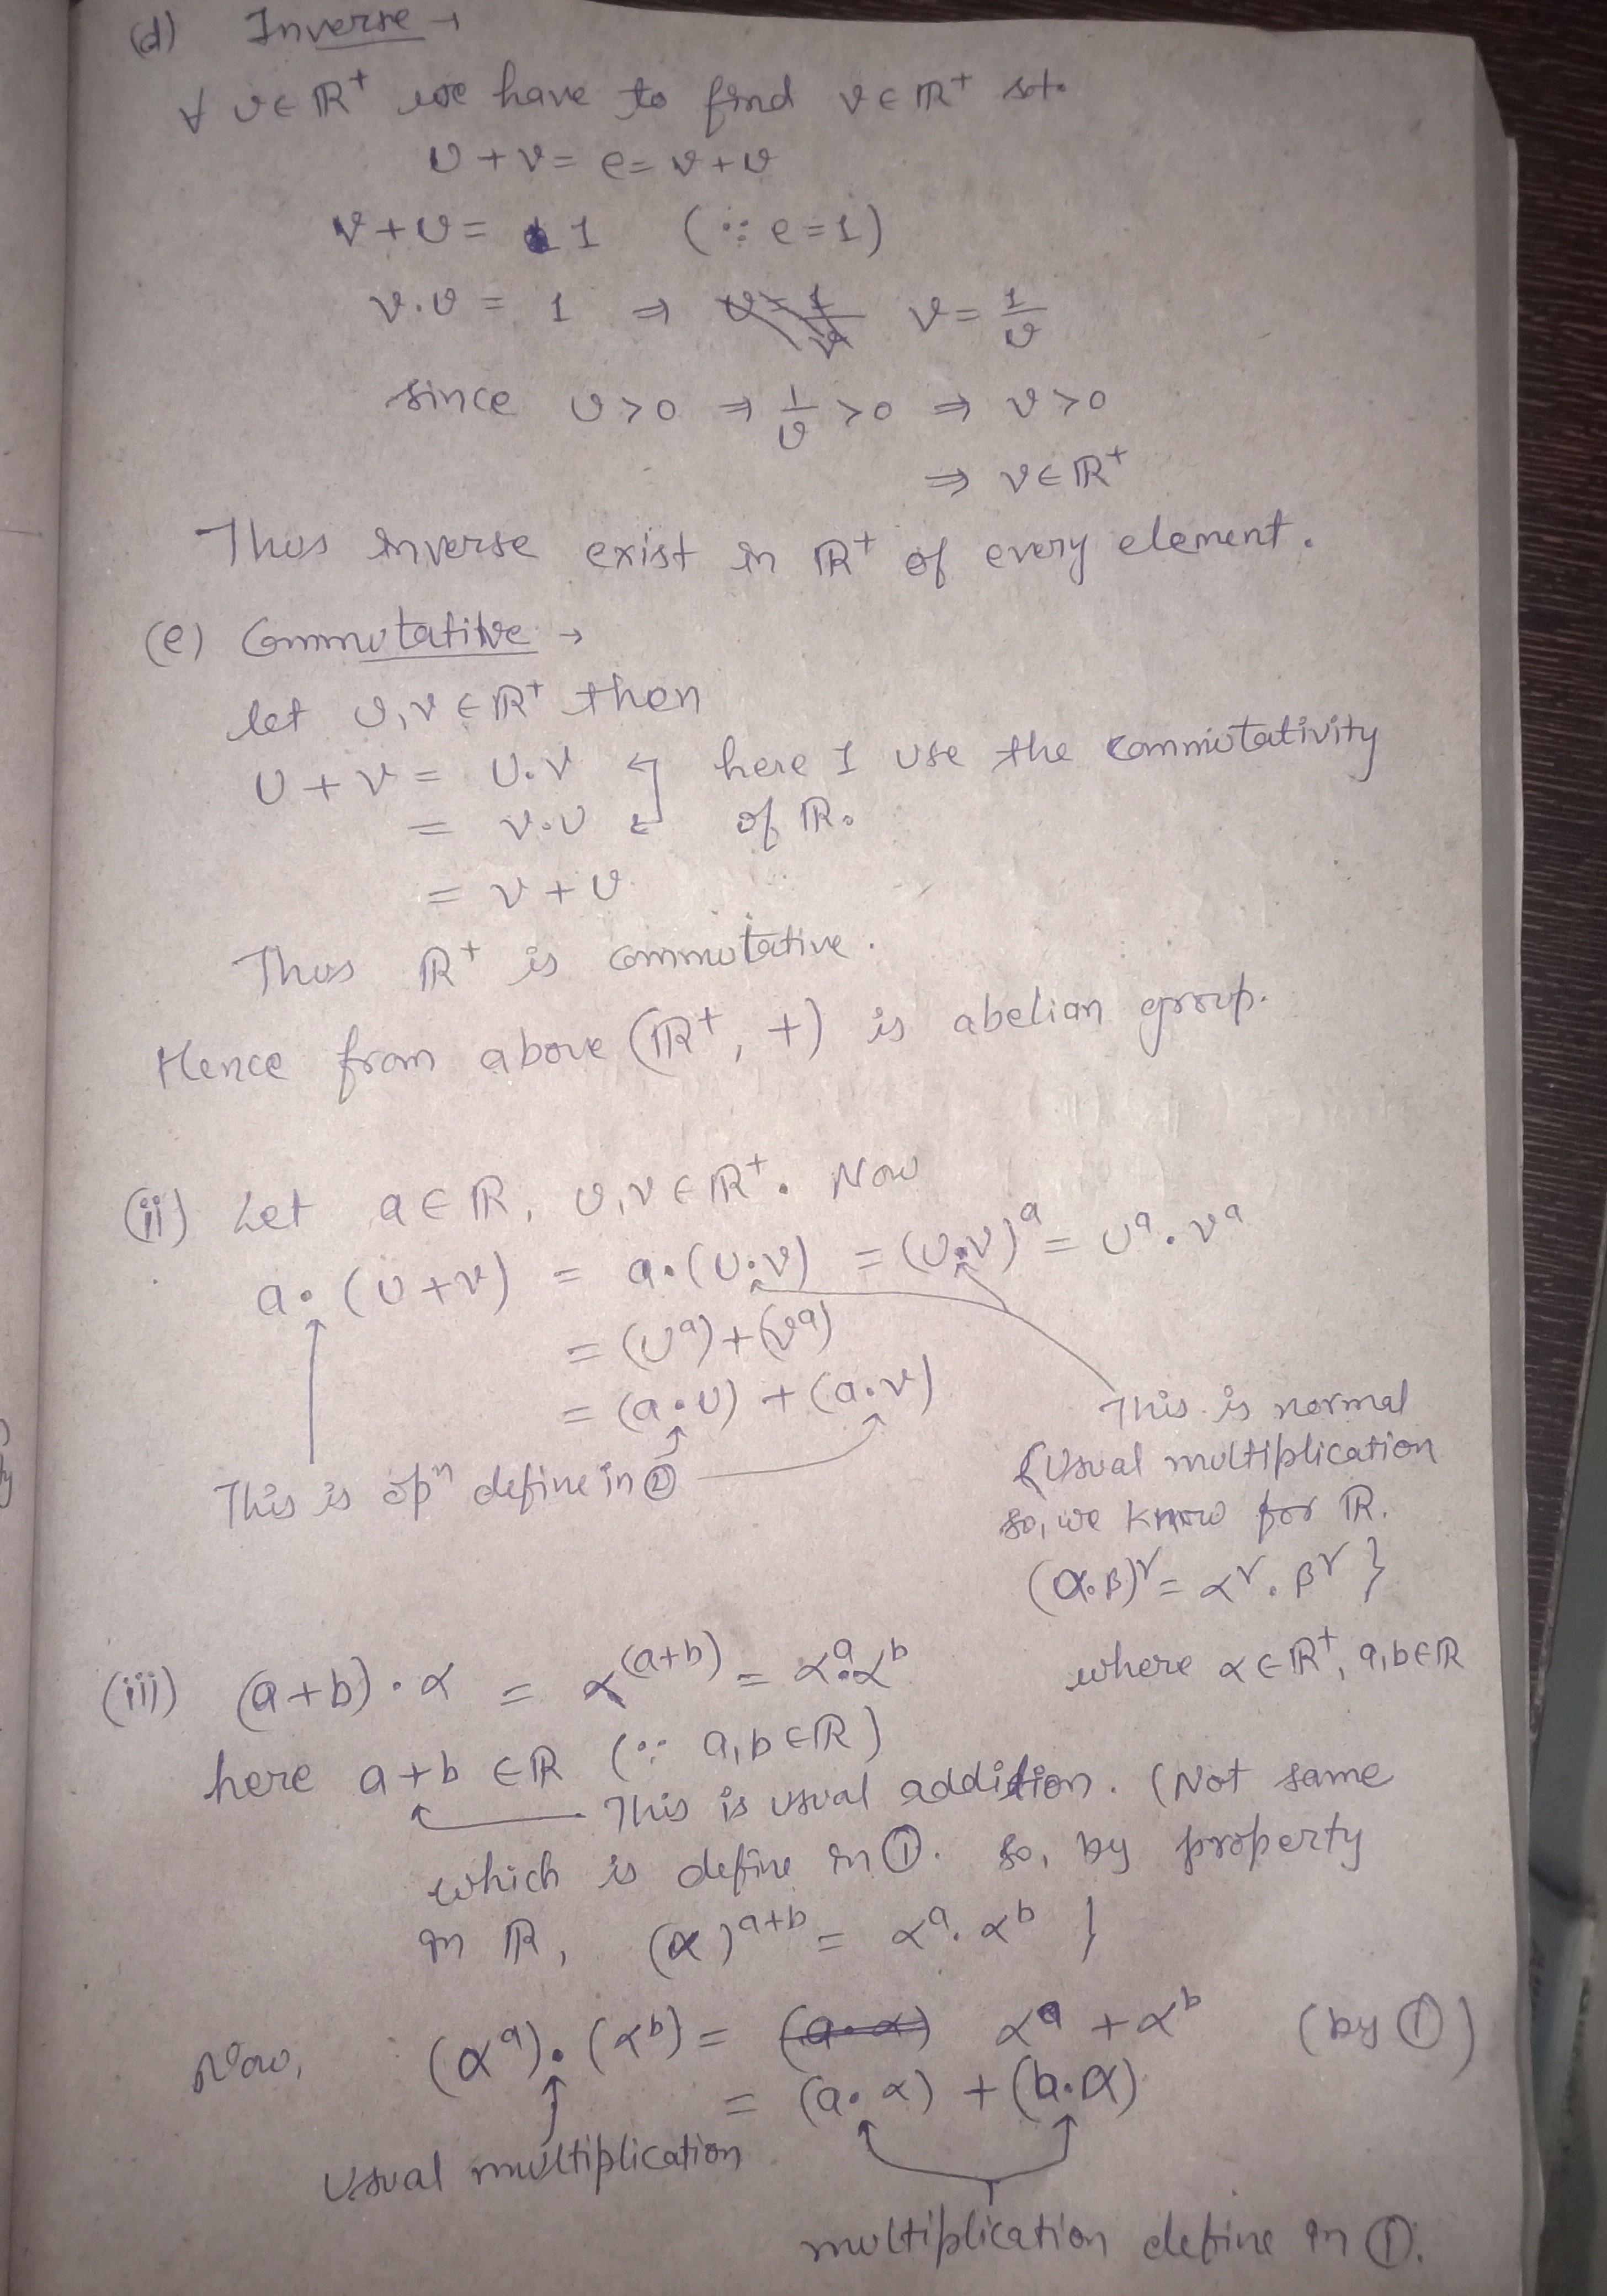 (d) Inverse →
∀ u ∈ ℝ⁺ we have to find v ∈ ℝ⁺ s.t.
u + v = e = v + u
v + u = 1 (∵ e = 1)
v.u = 1 ⇒ v = 1/u
since u > 0 ⇒ 1/u > 0 ⇒ v > 0
⇒ v ∈ ℝ⁺
Thus inverse exist in ℝ⁺ of every element.
(e) Commutative →
let u, v ∈ ℝ⁺ then
u + v = u.v here I use the commutativity
= v.u of ℝ.
= v + u
Thus ℝ⁺ is commutative.
Hence from above (ℝ⁺, +) is abelian group.
(ii) Let a ∈ ℝ, u, v ∈ ℝ⁺. Now
a.(u + v) = a.(u.v) = (u.v)ᵃ = uᵃ.vᵃ
= (uᵃ) + (vᵃ)
= (a.u) + (a.v)
This is opⁿ define in ②
This is normal
{Usual multiplication
so, we know for ℝ.
(α.β)ʳ = αʳ.βʳ }
(iii) (a+b).α = α⁽ᵃ⁺ᵇ⁾ = αᵃ.αᵇ where α ∈ ℝ⁺, a,b ∈ ℝ
here a+b ∈ ℝ (∵ a,b ∈ ℝ)
This is usual addition. (Not same
which is define in ①. so, by property
in ℝ, (α)ᵃ⁺ᵇ = αᵃ.αᵇ }
Now, (αᵃ).(αᵇ) = αᵃ + αᵇ (by ①)
= (a.α) + (b.α)
Usual multiplication
multiplication define in ①.